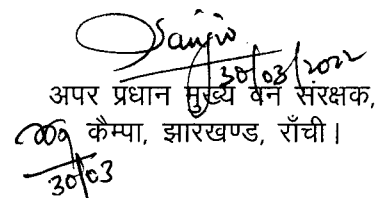 Sanjiv
30/03/2022
अपर प्रधान मुख्य वन संरक्षक,
कैम्पा, झारखण्ड, राँची।
30/03